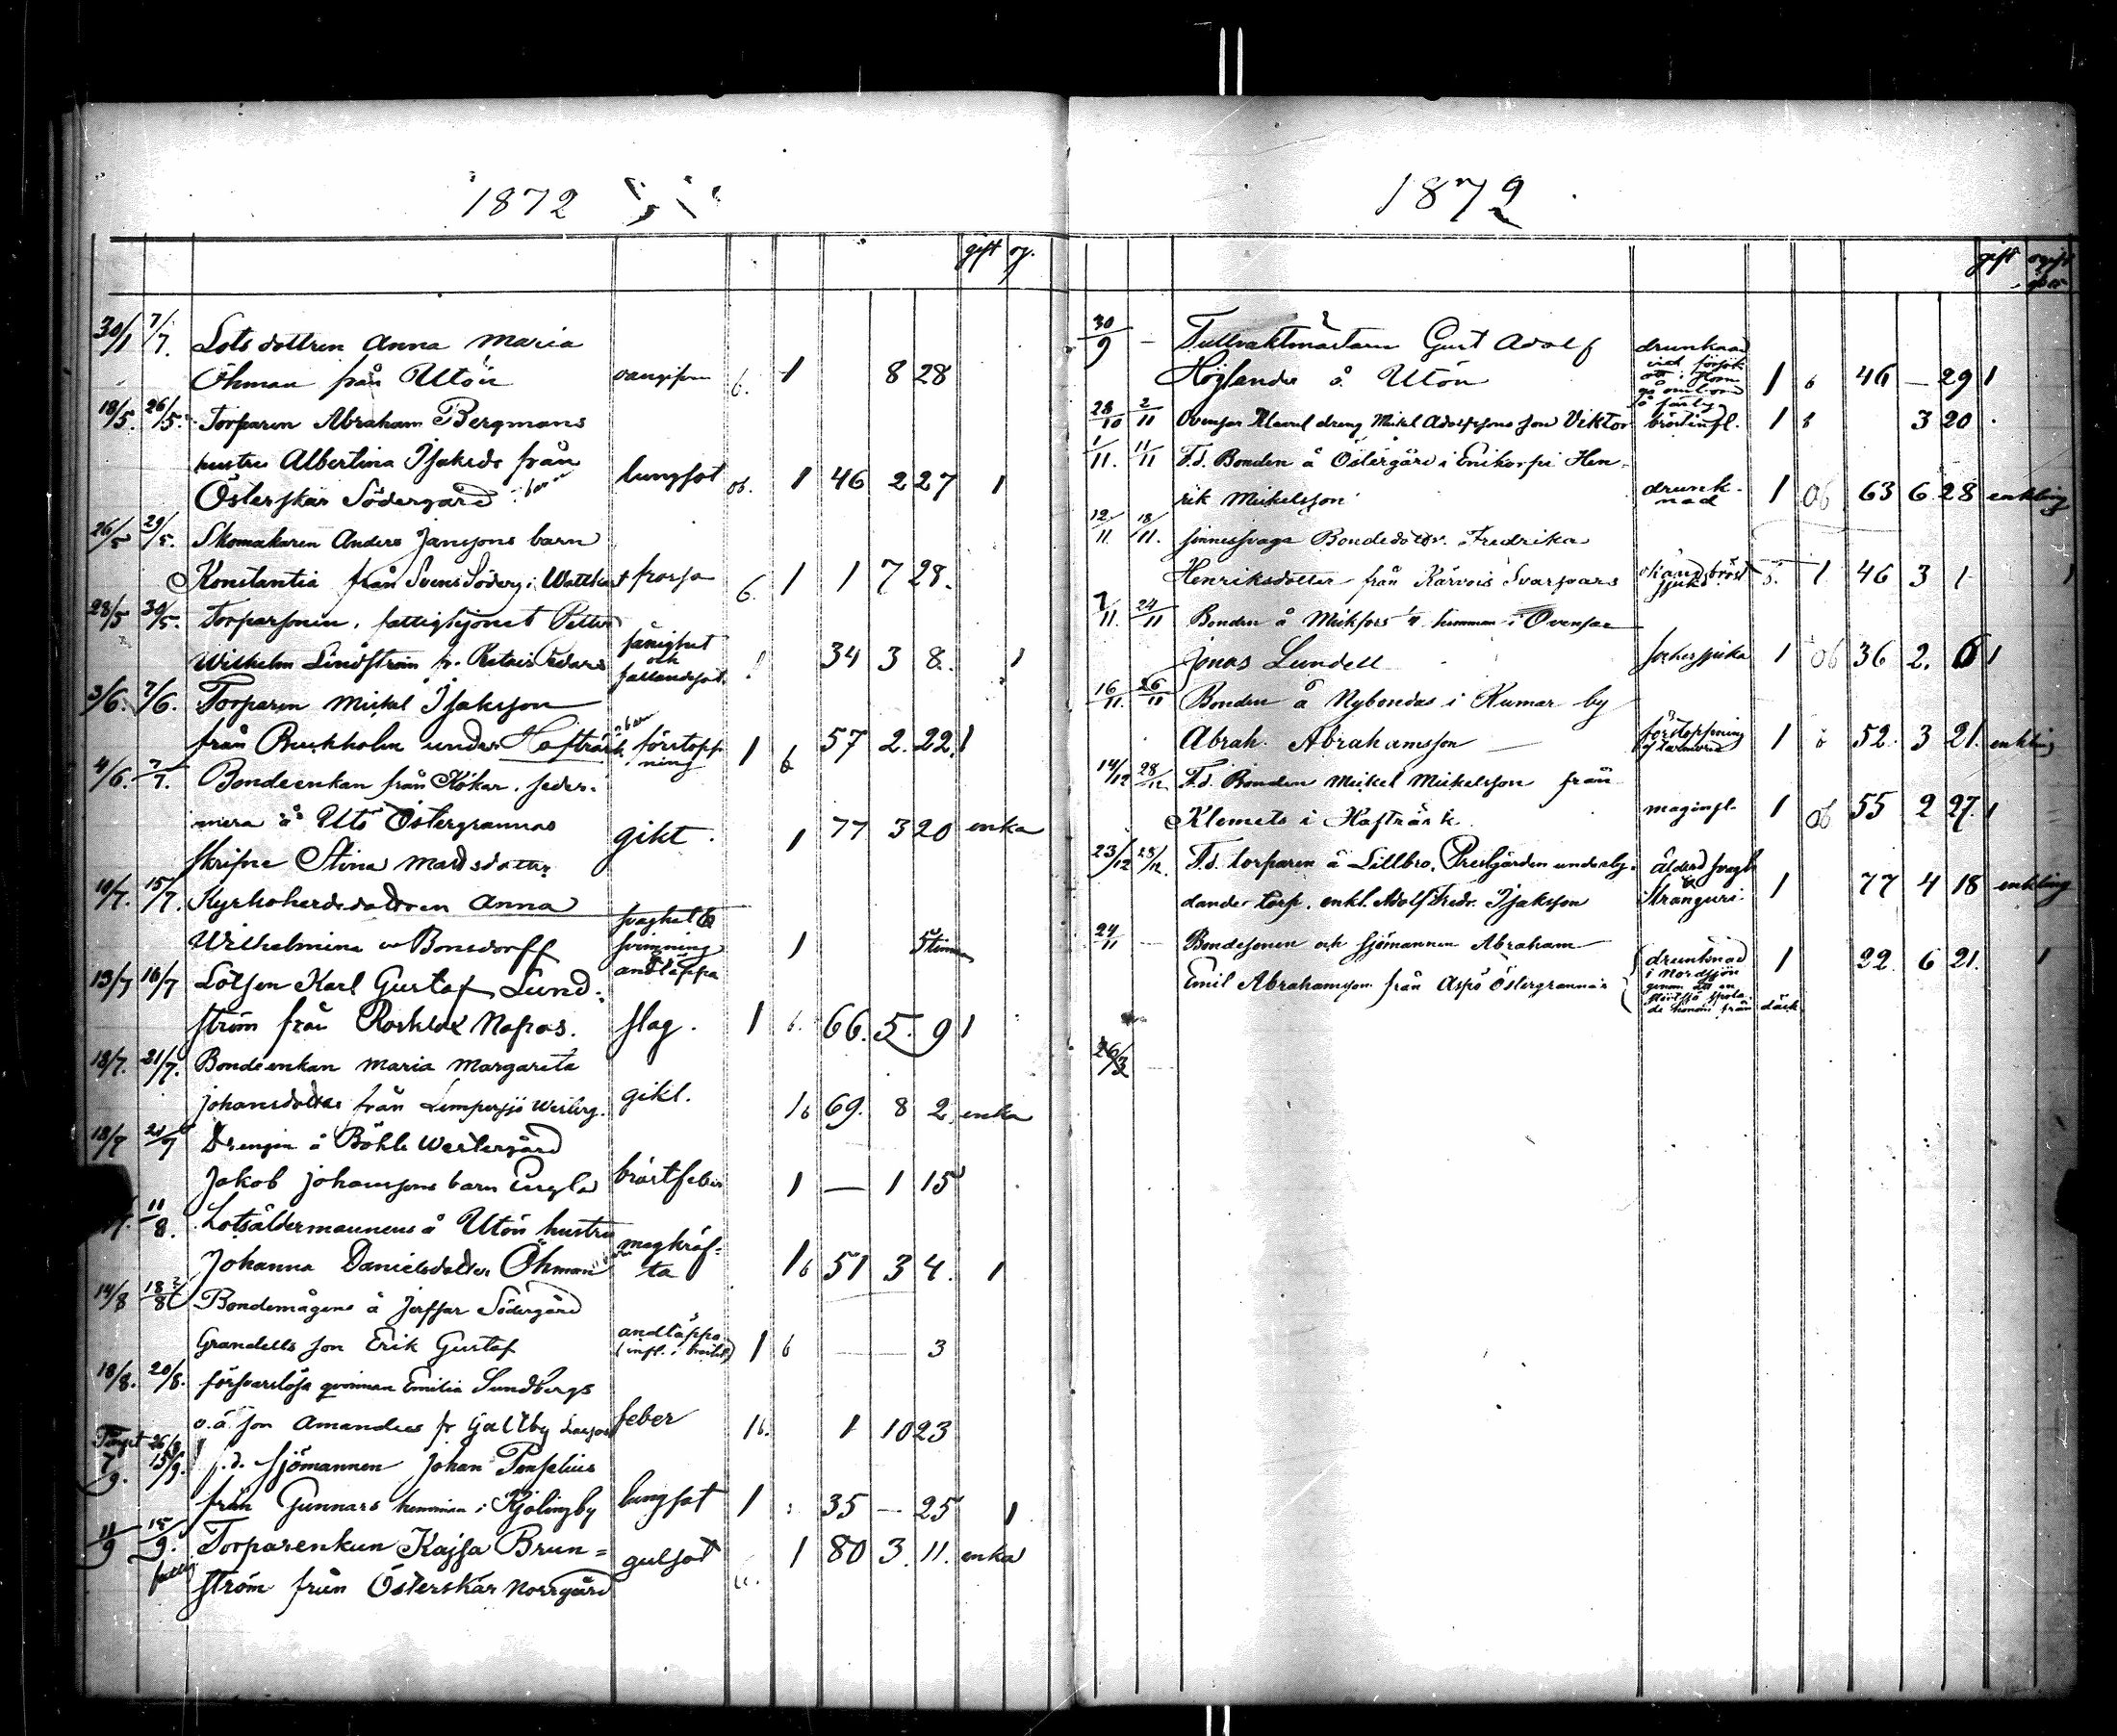 1872
gift og.
30/1 7/7. Lotsdottren Anna Maria
Öhman från Utön 6. 1 8 28
18/5. 26/5. Torparen Abraham Bergmans
hustru Albertina Isaksdr från
Österskär Södergård lungsot ob. 1 46 2 27 1
26/5 29/5. Skomakaren Anders Janssons barn
Konstantia från Svens Söderg. i Wattkast frossa 6. 1 1 7 28.
28/5 30/5. Torparsonen, fattighjonet Petter
Wilhelm Lindström fr. fånighet och fallandesot. 1 34 3 8. 1
3/6. 7/6. Torparen Mickel Isaksson
från Buckholm under Hafträsk förstoppning 1 6 57 2. 22. 1
4/6. 7/7. Bondeenkan från Kökar, seder-
mera å Utö Östergrannas
skrifne Stina Matsdotter gikt. 1 77 3 20 enka
10/7. 15/7. Kyrkoherdedottren Anna
Wilhelmina v. Bonsdorff svaghet & svimning andtäppa 1 5 timmar
13/7 16/7 Lotsen Karl Gustaf Lund-
ström från Nopas. slag. 1 6. 66. 5. 9 1
18/7. 21/7. Bondeenkan Maria Margareta
Johansdotter från Limpersjö Westerg. gikt. 1 6 69. 8 2 enka
18/7 21/7 Drengen å Böhle Westergård
Jakob Johanssons barn Engla bröstfeber 1 — 1 15
11/8. Lotsåldermannens å Utön hustru
Johanna Danielsdotter Öhman magkräf-
ta 1 6 51 3 4. 1
14/8 18/8 Bondemågens å Södergård
Grandells son Erik Gustaf andtäppa
(infl. i bröstet) 1 6 — — 3
18/8. 20/8. försvarslösa qvinnan Emilia Sundbergs
o.ä. son Amandus fr Galtby feber 1 6. 1 10 23
7/9. 15/9. f.d. sjömannen Johan
från Gunnars hemman i Kjolingby lungsot 1 35 — 25 1
11/9 15/9. Torparenkan Kajsa Brun=
ström från Österskär Norrgård gulsot 1 80 3. 11. enka
1872
gift ogift
30/9 — Tullvaktmästaren Gust Adolf
Höglander å Utön drunknad vid försök att 1 6 46 — 29 1
28/10 2/11 Ovensor Klemets dreng Mickel Adolfssons son Viktor bröstinfl. 1 3 20
1/11. 11/11 F.d. Bonden å Östergård i Hen-
rik Mickelsson drunk-
nad 1 ob 63 6 28 enkling
12/11. 18/11. sinnessvaga Bondedottr. Fredrika
Henriksdotter från Kärvois okänd bröst
sjukd. 1 46 3 1 1
7/11. 24/11 Bonden å Mickfors hemman i Ovensor
Jonas Lundell sockersjuka 1 ob 36 2. 6 1
16/11. 26/11 Bonden å Nybondas i Kumar by
Abrah. Abrahamsson förstoppning
af tarmarna 1 52. 3 21. enkling
14/12 28/12 F.d. Bonden Mickel Mickelsson från
Klemets i Hafträsk maginfl. 1 ob 55 2 27. 1
23/12 F.d. torparen å Lillbro, Prestgården underly-
dande torp, enkl. Adolf Fredr. Isaksson ålderd. svagh.
& Stranguri. 1 77 4 18 enkling
24/11 — Bondesonen och sjömannen Abraham
Emil Abrahamsson från Aspö Östergrannas drunknad
i Nordsjön
genom att en
störtsjö spola-
de honom från däck 1 22. 6 21. 1